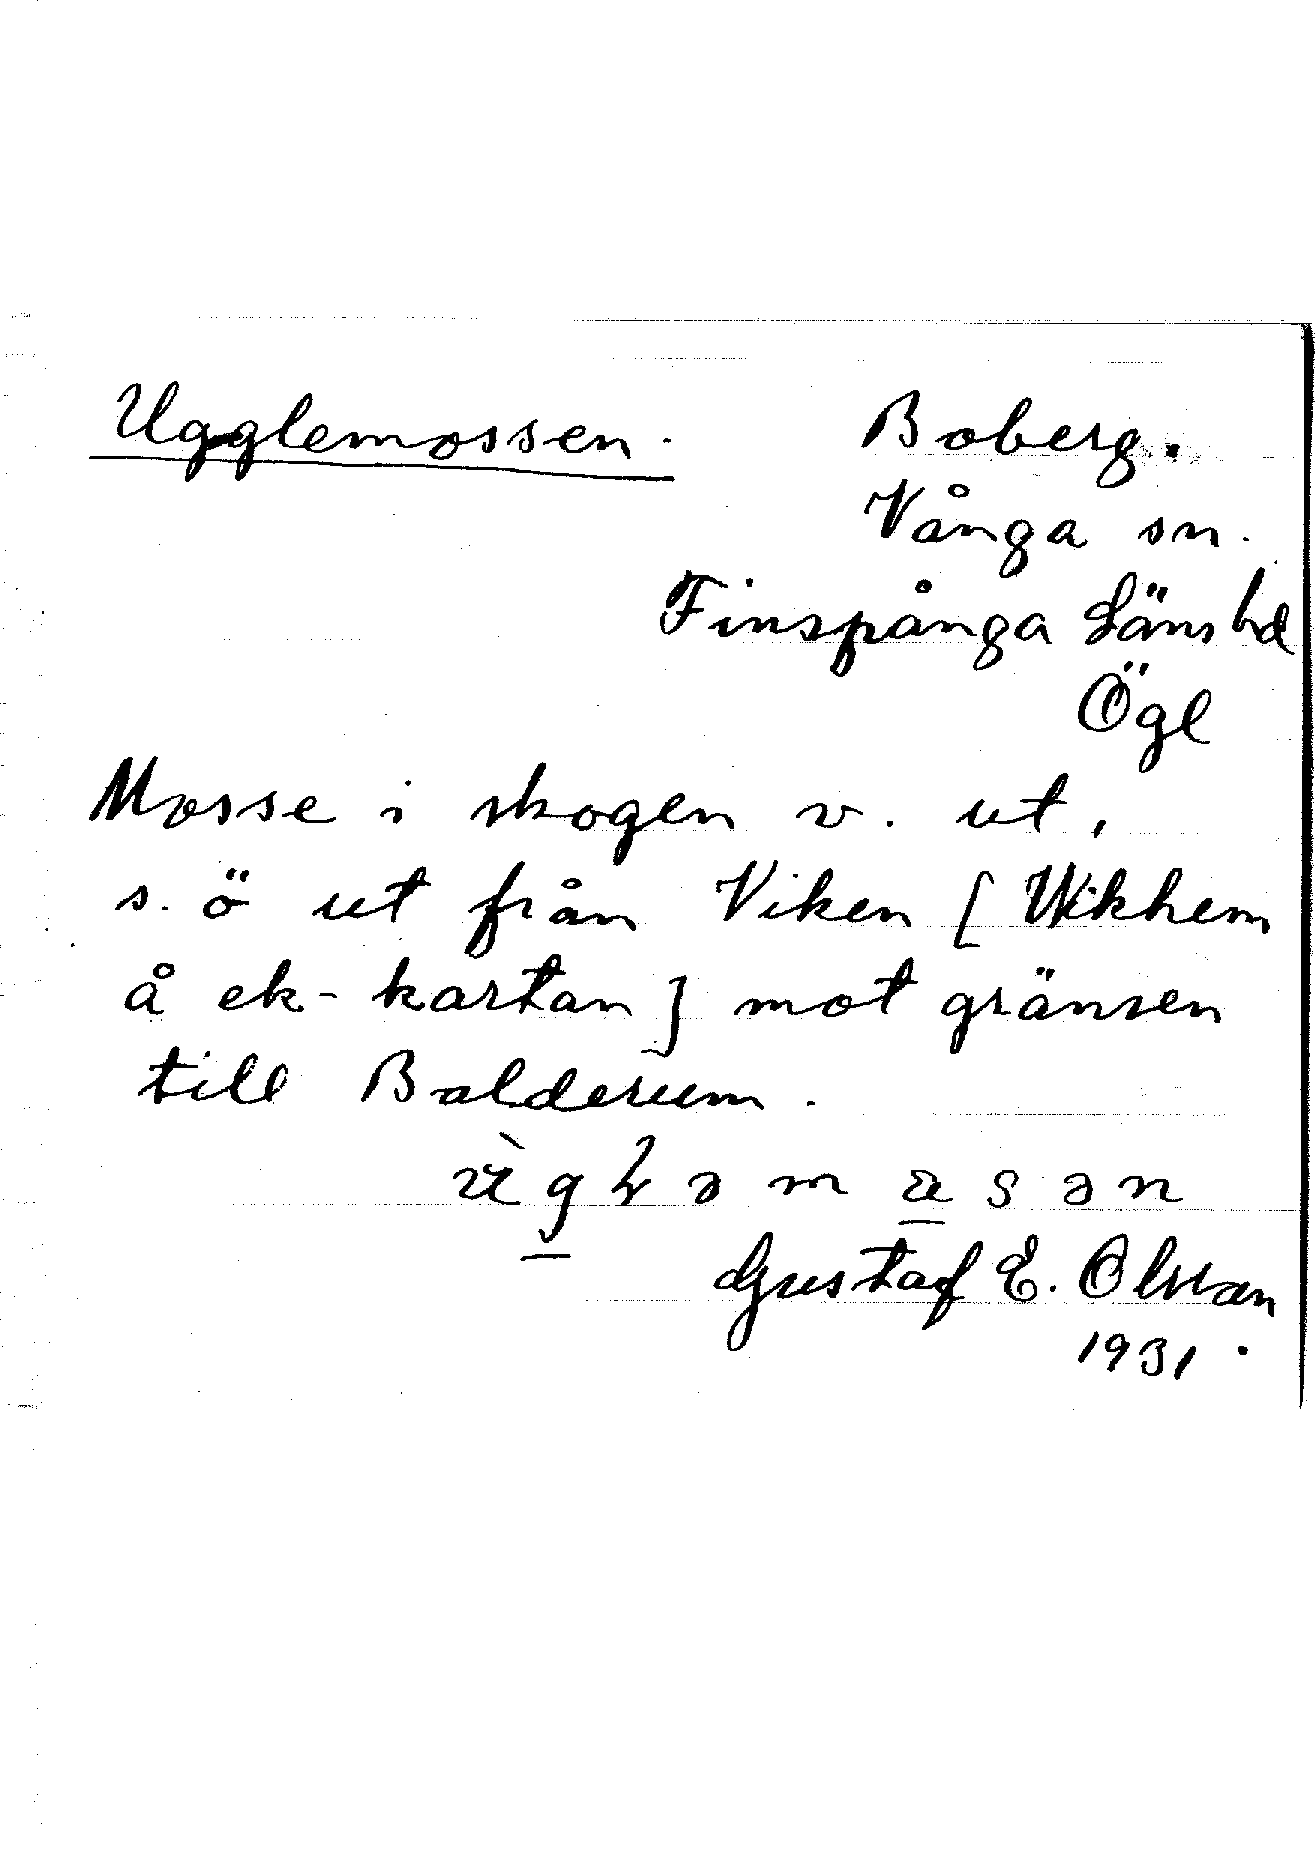 Ugglemossen. Boberg.
Vånga sn.
Finspånga Läns hd
Ögl
Mosse i skogen v. ut,
s. ö ut från Viken [Wikhem
å ek-kartan] mot gränsen
till Balderum.
Gustaf E. Olsson
1931.